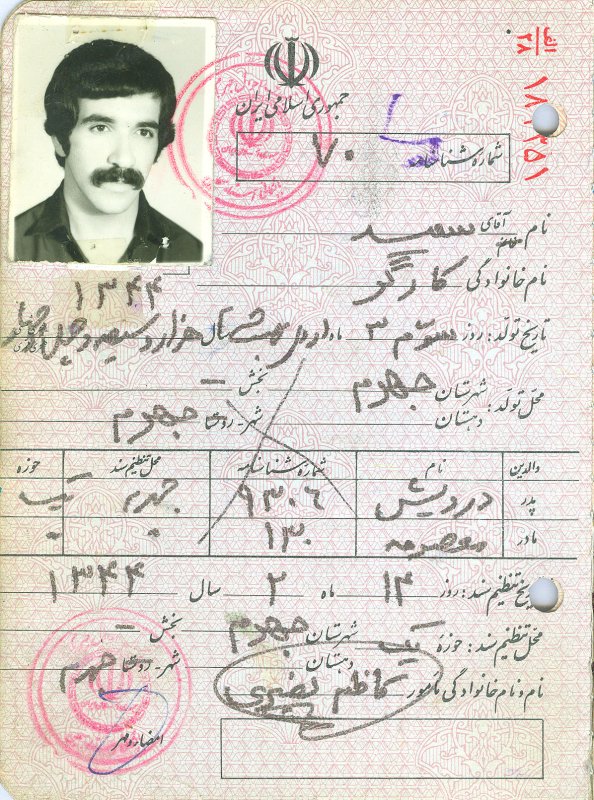 الف
۲۸
۱۸۱۳۵۱
جمهوری اسلامی ایران
شماره شناسنامه ۷۰
نام آقای سعید
خانم
نام خانوادگی کارگو
۱۳۴۴
تاریخ تولد: روز سوم ۳ ماه اردیبهشت سال هزار و سیصد و چهل و چهار
محل تولد: شهرستان جهرم بخش –
دهستان شهر - روستا جهرم
والدین نام شماره شناسنامه محل تنظیم سند حوزه
پدر درویش ۹۳۰۶ جهرم یک
مادر معصومه ۱۳۰ " "
تاریخ تنظیم سند: روز ۱۴ ماه ۲ سال ۱۳۴۴
محل تنظیم سند: حوزه یک شهرستان جهرم بخش –
دهستان شهر - روستا جهرم
نام و نام خانوادگی مأمور کاظم نصیری
امضاء و مهر